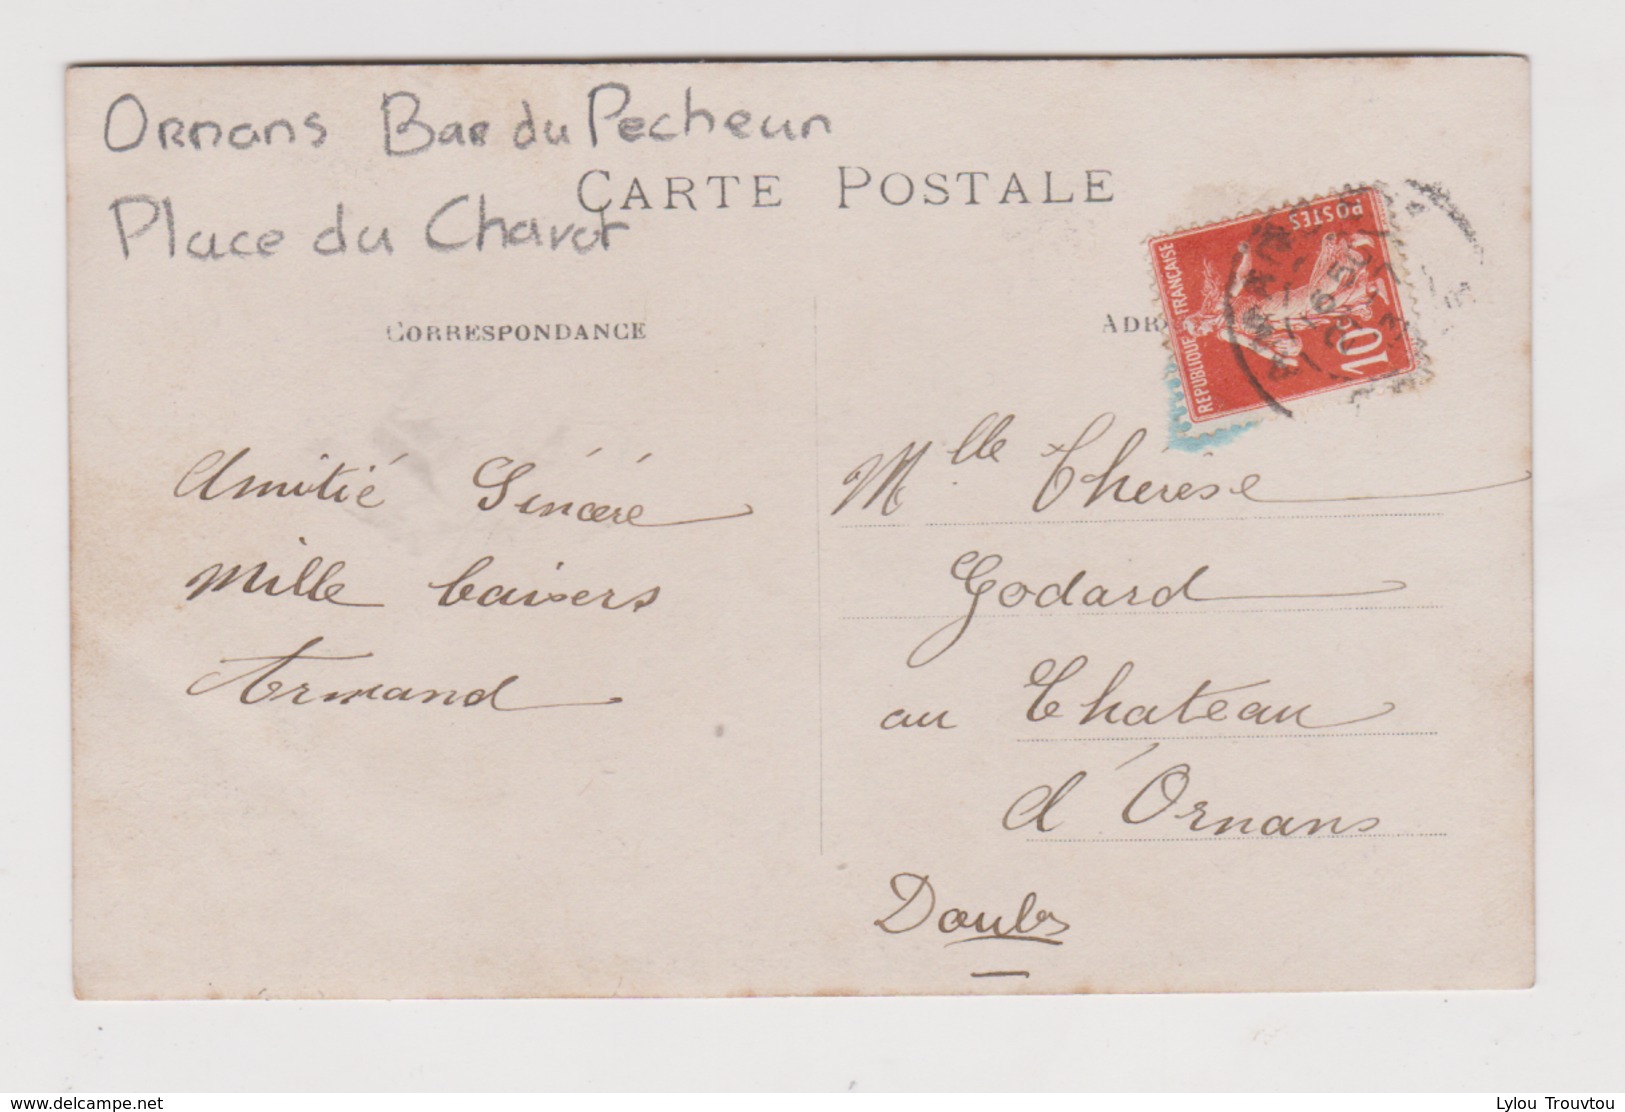 Ornans Bar du Pecheur
Place du Chavot
CARTE POSTALE
CORRESPONDANCE
ADR
REPUBLIQUE FRANÇAISE
POSTES
10c
Amitié Sincère
Mille baisers
Armand
Mlle Thérèse
Godard
au Chateau
d'Ornans
Doubs
www.delcampe.net
Lylou Trouvtou